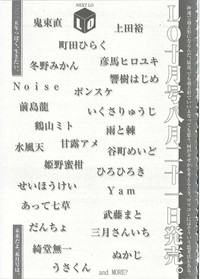 NEXT LO
LO
LO十月号八月二十一日発売。
鬼束直
上田裕
町田ひらく
冬野みかん
彦馬ヒロユキ
響樹はじめ
Noise
ポンスケ
前島龍
いくさりゅうじ
鶴山ミト
雨と棘
水風天
甘露アメ
谷町めいど
姫野蜜柑
ひろひろき
せいほうけい
Yam
あって七草
武藤まと
だんちょ
三月さんいち
綺堂無一
ぬかじ
うさくん
and MORE?